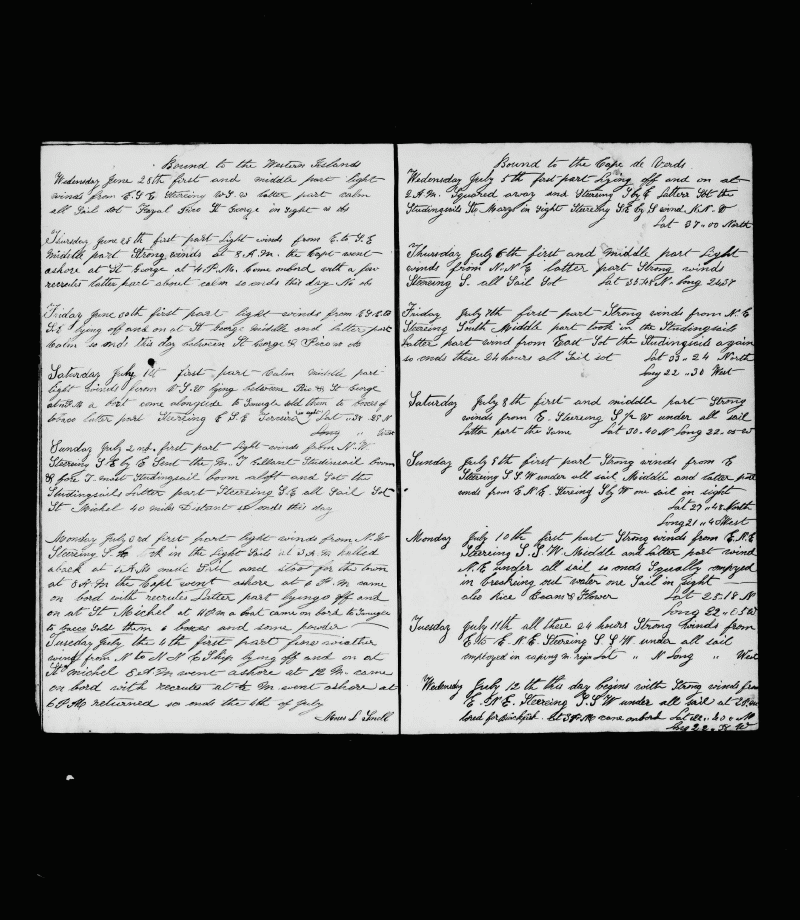 Bound to the Western Islands
Wednesday June 28th first and middle part light
winds from E.S.E Steering W.S.W latter part calm
all Sail Sot Fayal Pico St George in sight so ends
Thursday June 29th first part Light winds from E. to S.E
Middle part Strong winds at 8 A.M. the Capt went
ashore at St George at 4 P.M. Come onbord with a few
recruits latter part about calm so ends this day
Friday June 30th first part light winds from
S.E lying off and on at St George middle and latter part
Calm so end this day between St George & Pico
Saturday July 1st first part Calm middle part
light Winds from lying between Pico & St George
a Bort came alongside to Smugle sold them 10 boxes of
latter part Steering E S E Terceira in sight Lat 38 " 25 N
Long " West
Sunday July 2nd first part light winds from N.W.
Steering S E by E Sent the M. T Gallant Studinsail boom
& fore T. mast Studingsail boom aloft and Sot the
Studingsails latter part Steering S.E all Sail Sot
St Michel 40 miles Distant so ends this day
Monday July 3rd first part light winds from N.W
Steering S. took in the Light Sails at 3 A.M. pulled
aback at 5 A.M. made Sail and stood for the town
at 8 A.M the Capt went ashore at 6 P.M. came
on bord with recruits Latter part lyingo off and
on at St Michel at 11 P.M a boat came on bord to Smugle
sold them 6 boxes and some powder
Tuesday July the 4th first part fine weather
wind from N to N N E Ship lying off and on at
St Michel 5 A.M went ashore at 12 M. came
on bord with recruits at M went ashore at
6 P.M. returned so ends the 4th of July
Moses S. Snell
Bound to the Cape de Verds.
Wednesday July 5th first part lying off and on at
2 A.M. Squared away and Steering S by E Latter Sot the
Studingsails St. Marys in sight Steering S.E by S wind N.N.
Lat 37 " 00 North
Thursday July 6th first and middle part Light
winds from N.N E latter part Strong winds
Steering S. all Sail Sot Lat 35.48 N. Long 24.37
Friday July 7th first part Strong winds from N. E
Steering South Middle part took in the Studingsails
latter part wind from East Sot the Studingsails again
so ends these 24 hours all Sail sot Lat 33 " 24 North
Long 22 " 30 West
Saturday July 8th first and middle part Strong
winds from E. Steering S by W under all sail
latter part the Same Lat 30.40 N Long 22 " 05 W
Sunday July 9th first part Strong winds from E
Steering S S W under all sail Middle and latter part
winds from E.N.E. Steering S by W one sail in sight
Lat 27 " 48 North
Long 21 " 45 West
Monday July 10th first part Strong winds from E.N.E
Steering S.S.W Middle and latter part wind
N.E under all sail so ends Squally employed
in breaking out water one Sail in sight
also Rice Beans & Flower Lat 25.18 N
Long 22 " 05 W
Tuesday July 11th all these 24 hours Strong winds from
E to E.N.E. Steering S S W. under all sail
employed in Lat " N Long " West
Wednesday July 12th this day begins with Strong winds from
E.N.E. Steering S.S.W under all sail at
lored for blackfish. at 3 P.M came onbord Lat 22 " 40 " N
Long 22 " W